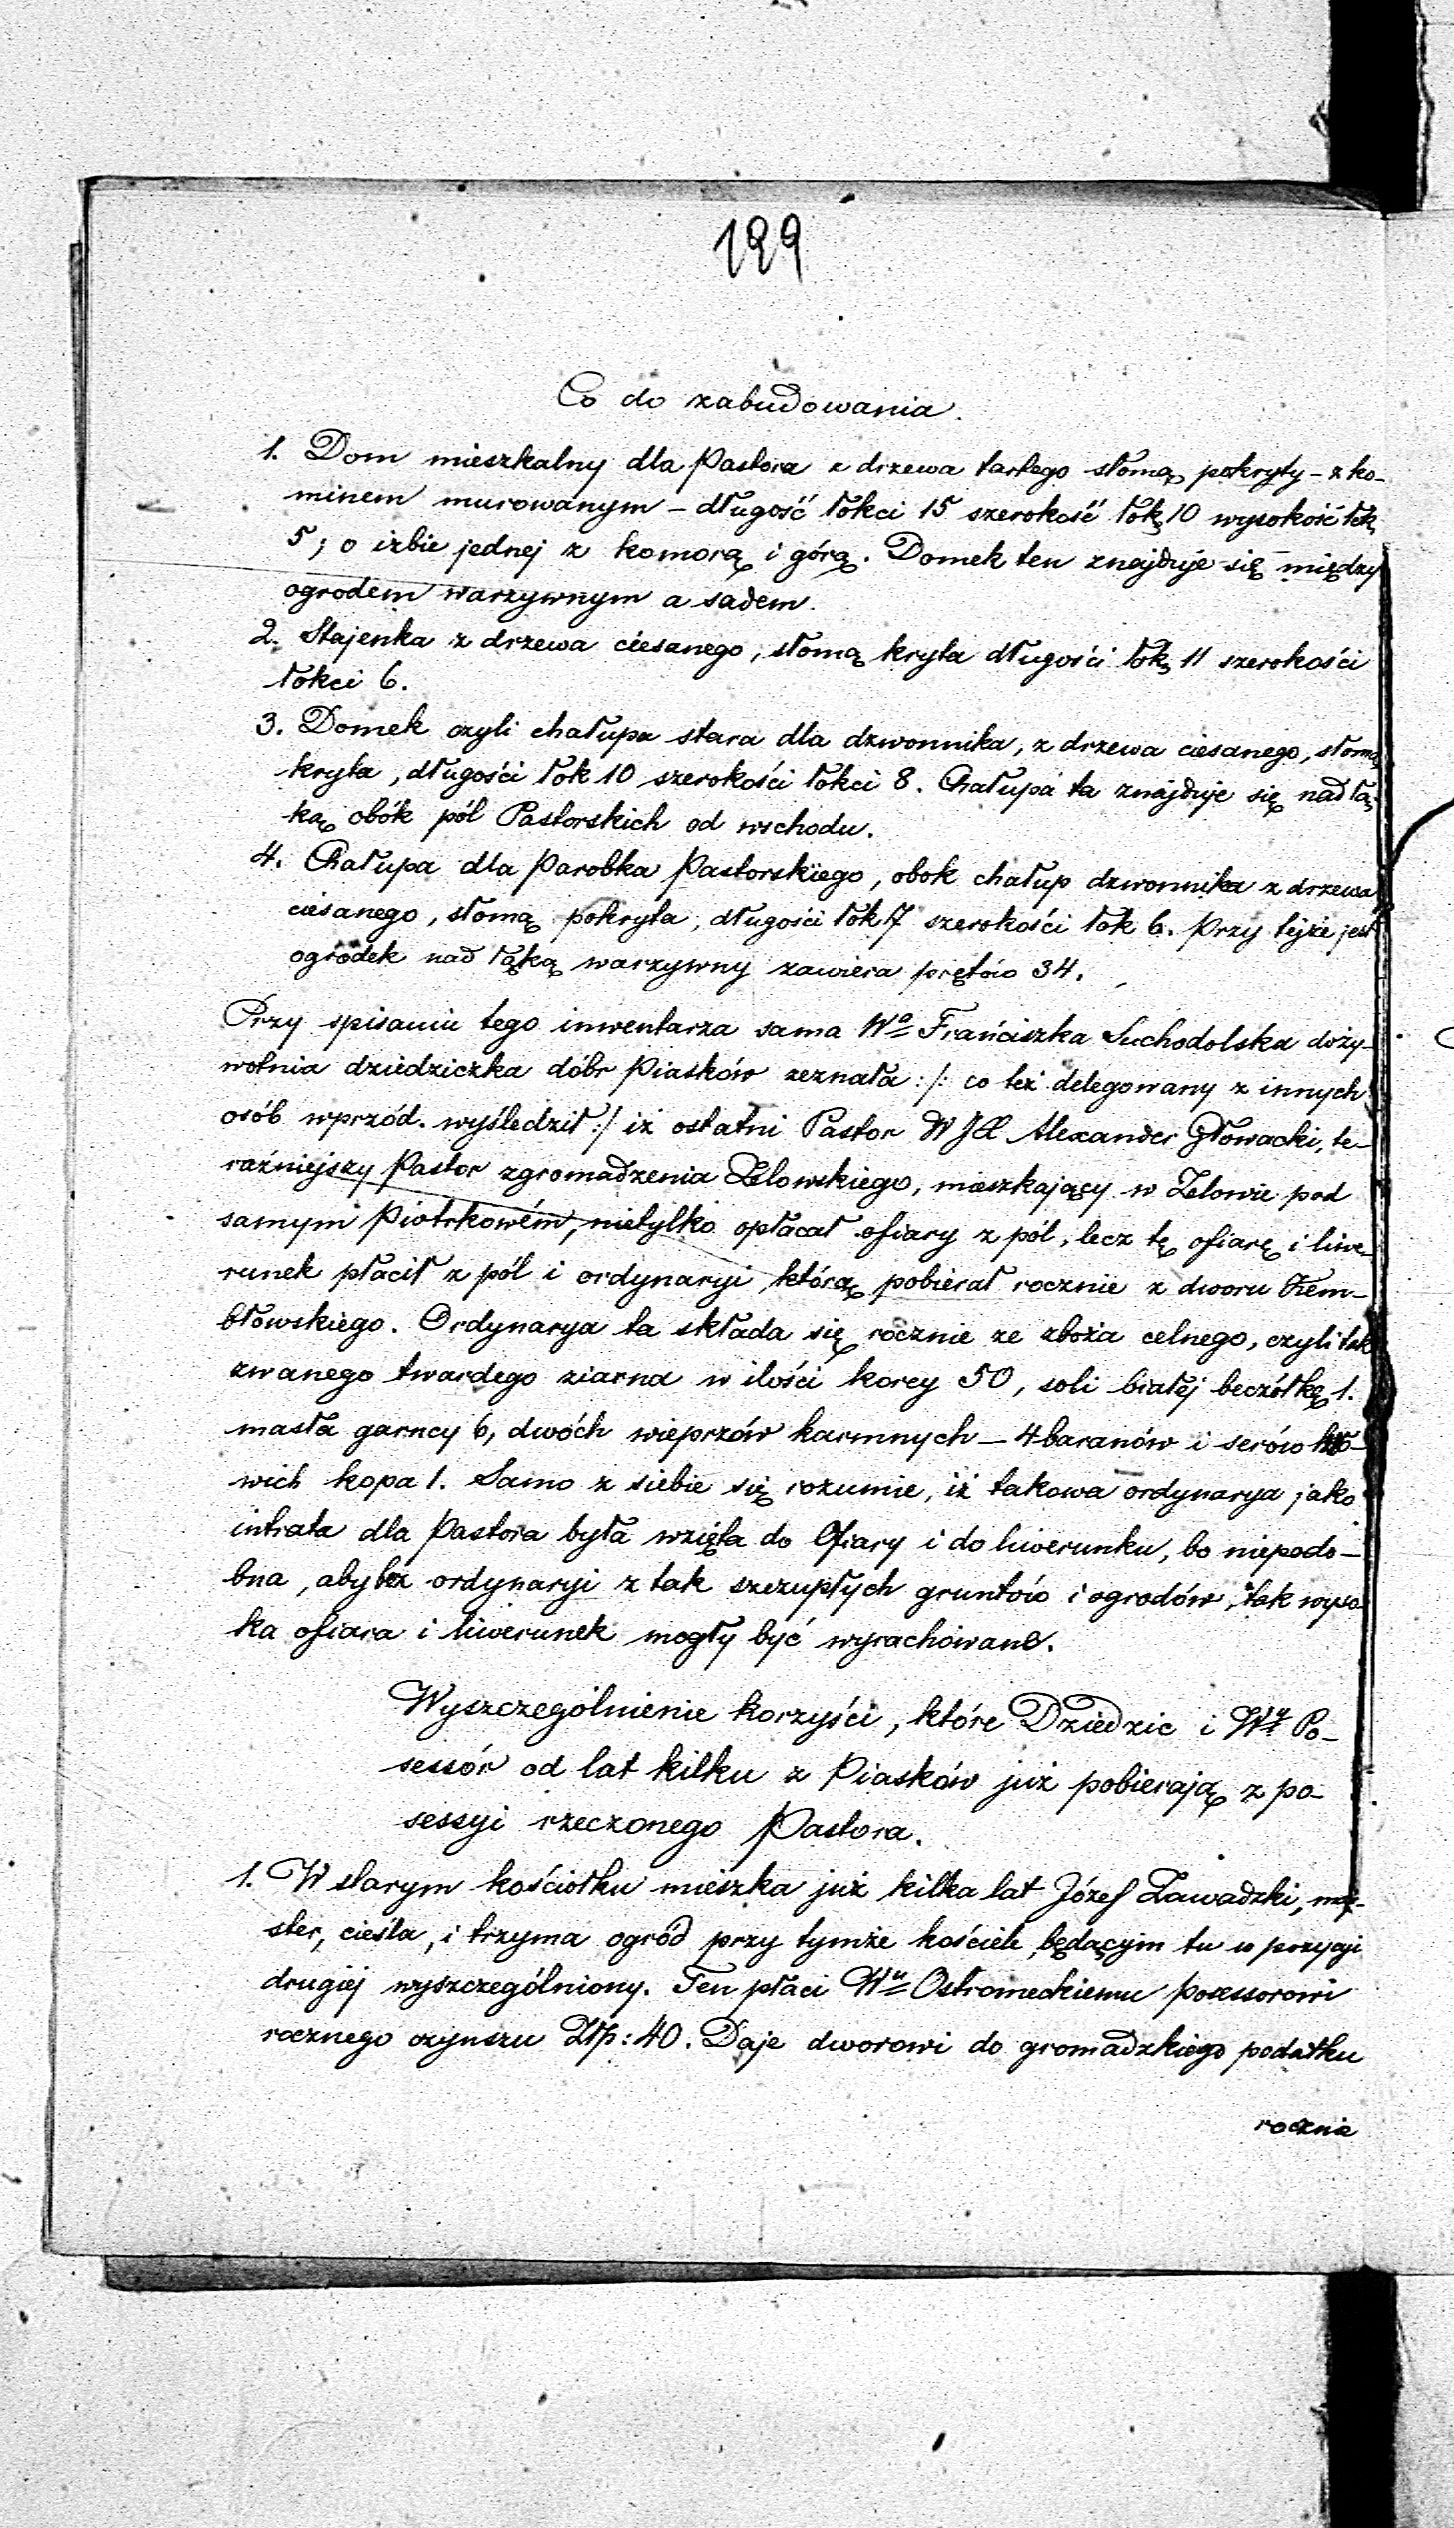 199
Co do zabudowania.
1. Dom mieszkalny dla Pastora z drzewa tartego słomą pokryty – z ko-
minem murowanym – długość łokci 15 szerokość łok 10 wysokość łok
5; o izbie jednej z komorą i górą. Domek ten znajduje się między
ogrodem warzywnym a sadem.
2. Stajenka z drzewa ciesanego, słomą kryta długości łok 11 szerokości
łokci 6.
3. Domek czyli chałupa stara dla dzwonnika, z drzewa ciesanego, słomą
kryta, długości łok 10 szerokości łokci 8. Chałupa ta znajduje się nad łą-
ką obók pól Pastorskich od wschodu.
4. Chałupa dla Parobka Pastorskiego, obok chałup dzwonnika z drzewa
ciesanego, słomą pokryta, długości łok 7 szerokości łok 6. Przy tejże jest
ogródek nad łąką warzywny zawiera prętów 34.
Przy spisaniu tego inwentarza sama Wa Franciszka Suchodolska doży-
wotnia dziedziczka dóbr Piasków zeznała :/: co też delegowany z innych
osób wprzód. wyśledził :/ iż ostatni Pastor WJX Alexander Głowacki, te-
raźniejszy Pastor zgromadzenia Zelowskiego, mieszkający w Zelowie pod
samym Piotrkowém, nietylko opłacał ofiary z pól, lecz tę ofiarę i liwe-
runek płacił z pól i ordynaryi którą pobierał rocznie z dworu Kem-
błowskiego. Ordynarya ta składa się rocznie ze zboża celnego, czyli tak
zwanego twardego ziarna w ilości korcy 50, soli białej beczółkę 1.
masła garncy 6, dwóch wieprzów karmnych – 4 baranów i serów kro-
wich kopa 1. Samo z siebie się rozumie, iż takowa ordynarya jako
intrata dla Pastora była wzięta do Ofiary i do liwerunku, bo niepodo-
bna, aby bez ordynaryi z tak szczupłych gruntów i ogrodów, tak wyso-
ka ofiara i liwerunek mogły być wyrachowane.
Wyszczególnienie korzyści, które Dziedzic i Wy Po-
sessór od lat kilku z Piasków już pobierają z po-
sessyi rzeczonego Pastora.
1. W starym kościołku mieszka już kilka lat Józef Zawadzki, maj-
ster, cieśla, i trzyma ogród przy tymże kościele będącym tu w pozycyi
drugiej wyszczególniony. Ten płaci Wu Ostromeckiemu possessorowi
rocznego czynszu Złp: 40. Daje dworowi do gromadzkiego podatku
rocznie